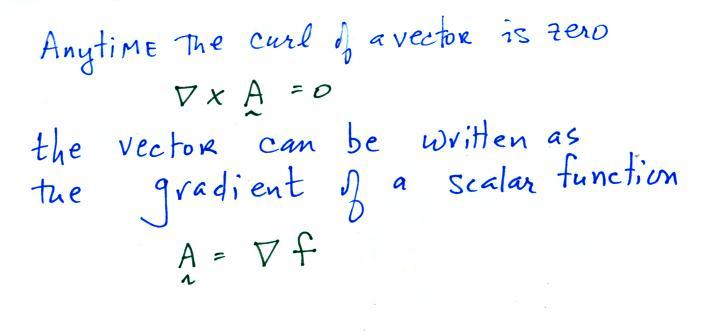 Anytime the curl of a vector is zero
∇ x A = 0
the vector can be written as
the gradient of a scalar function
A = ∇ f